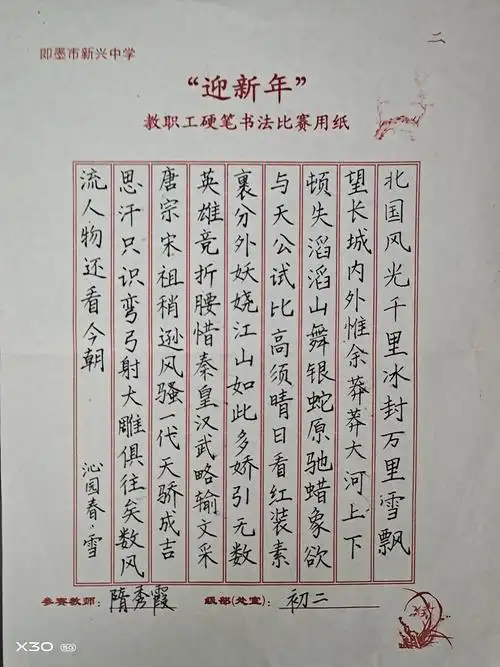 二
即墨市新兴中学
“迎新年”
教职工硬笔书法比赛用纸
北国风光千里冰封万里雪飘
望长城内外惟余莽莽大河上下
顿失滔滔山舞银蛇原驰蜡象欲
与天公试比高须晴日看红装素
裹分外妖娆江山如此多娇引无数
英雄竞折腰惜秦皇汉武略输文采
唐宗宋祖稍逊风骚一代天骄成吉
思汗只识弯弓射大雕俱往矣数风
流人物还看今朝 沁园春·雪
参赛教师：隋秀霞 级部(处室)：初二
X30 5G